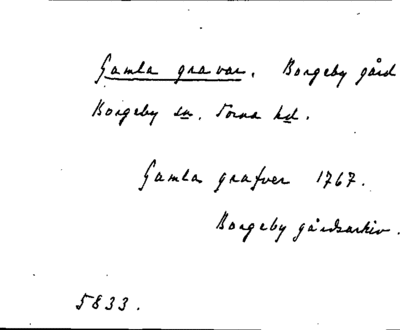 Gamla gravar. Borgeby gård
Borgeby sn. Torna hd.
Gamla grafver 1767.
Borgeby gårdsarkiv.
5833.